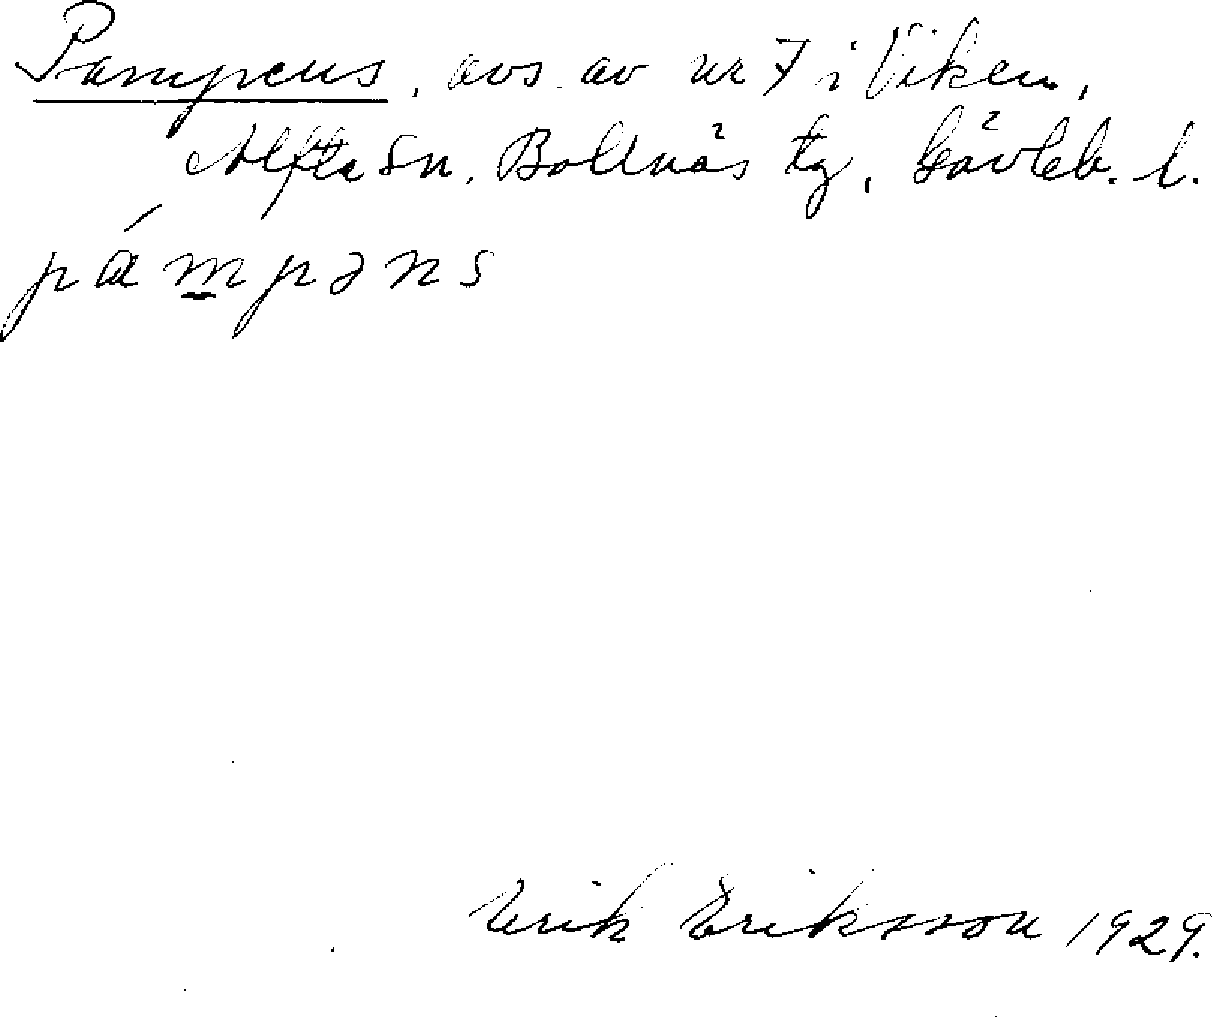 Pampens, avs. av nr 7 i Viken,
Alfta sn, Bollnäs tg, Gävleb. l.
pámpəns
Erik Eriksson 1929.